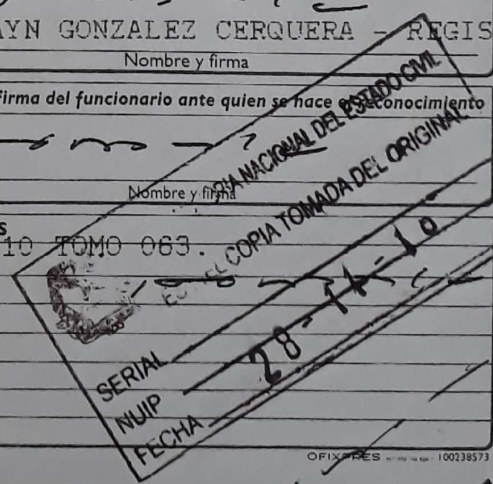 AYN GONZALEZ CERQUERA - REGIS
Nombre y firma
Firma del funcionario ante quien se hace el reconocimiento
Nombre y firma
10 TOMO 063.
NACIONAL DEL ESTADO CIVIL
COPIA TOMADA DEL ORIGINAL
SERIAL
NUIP
FECHA 28-11-10
100238573